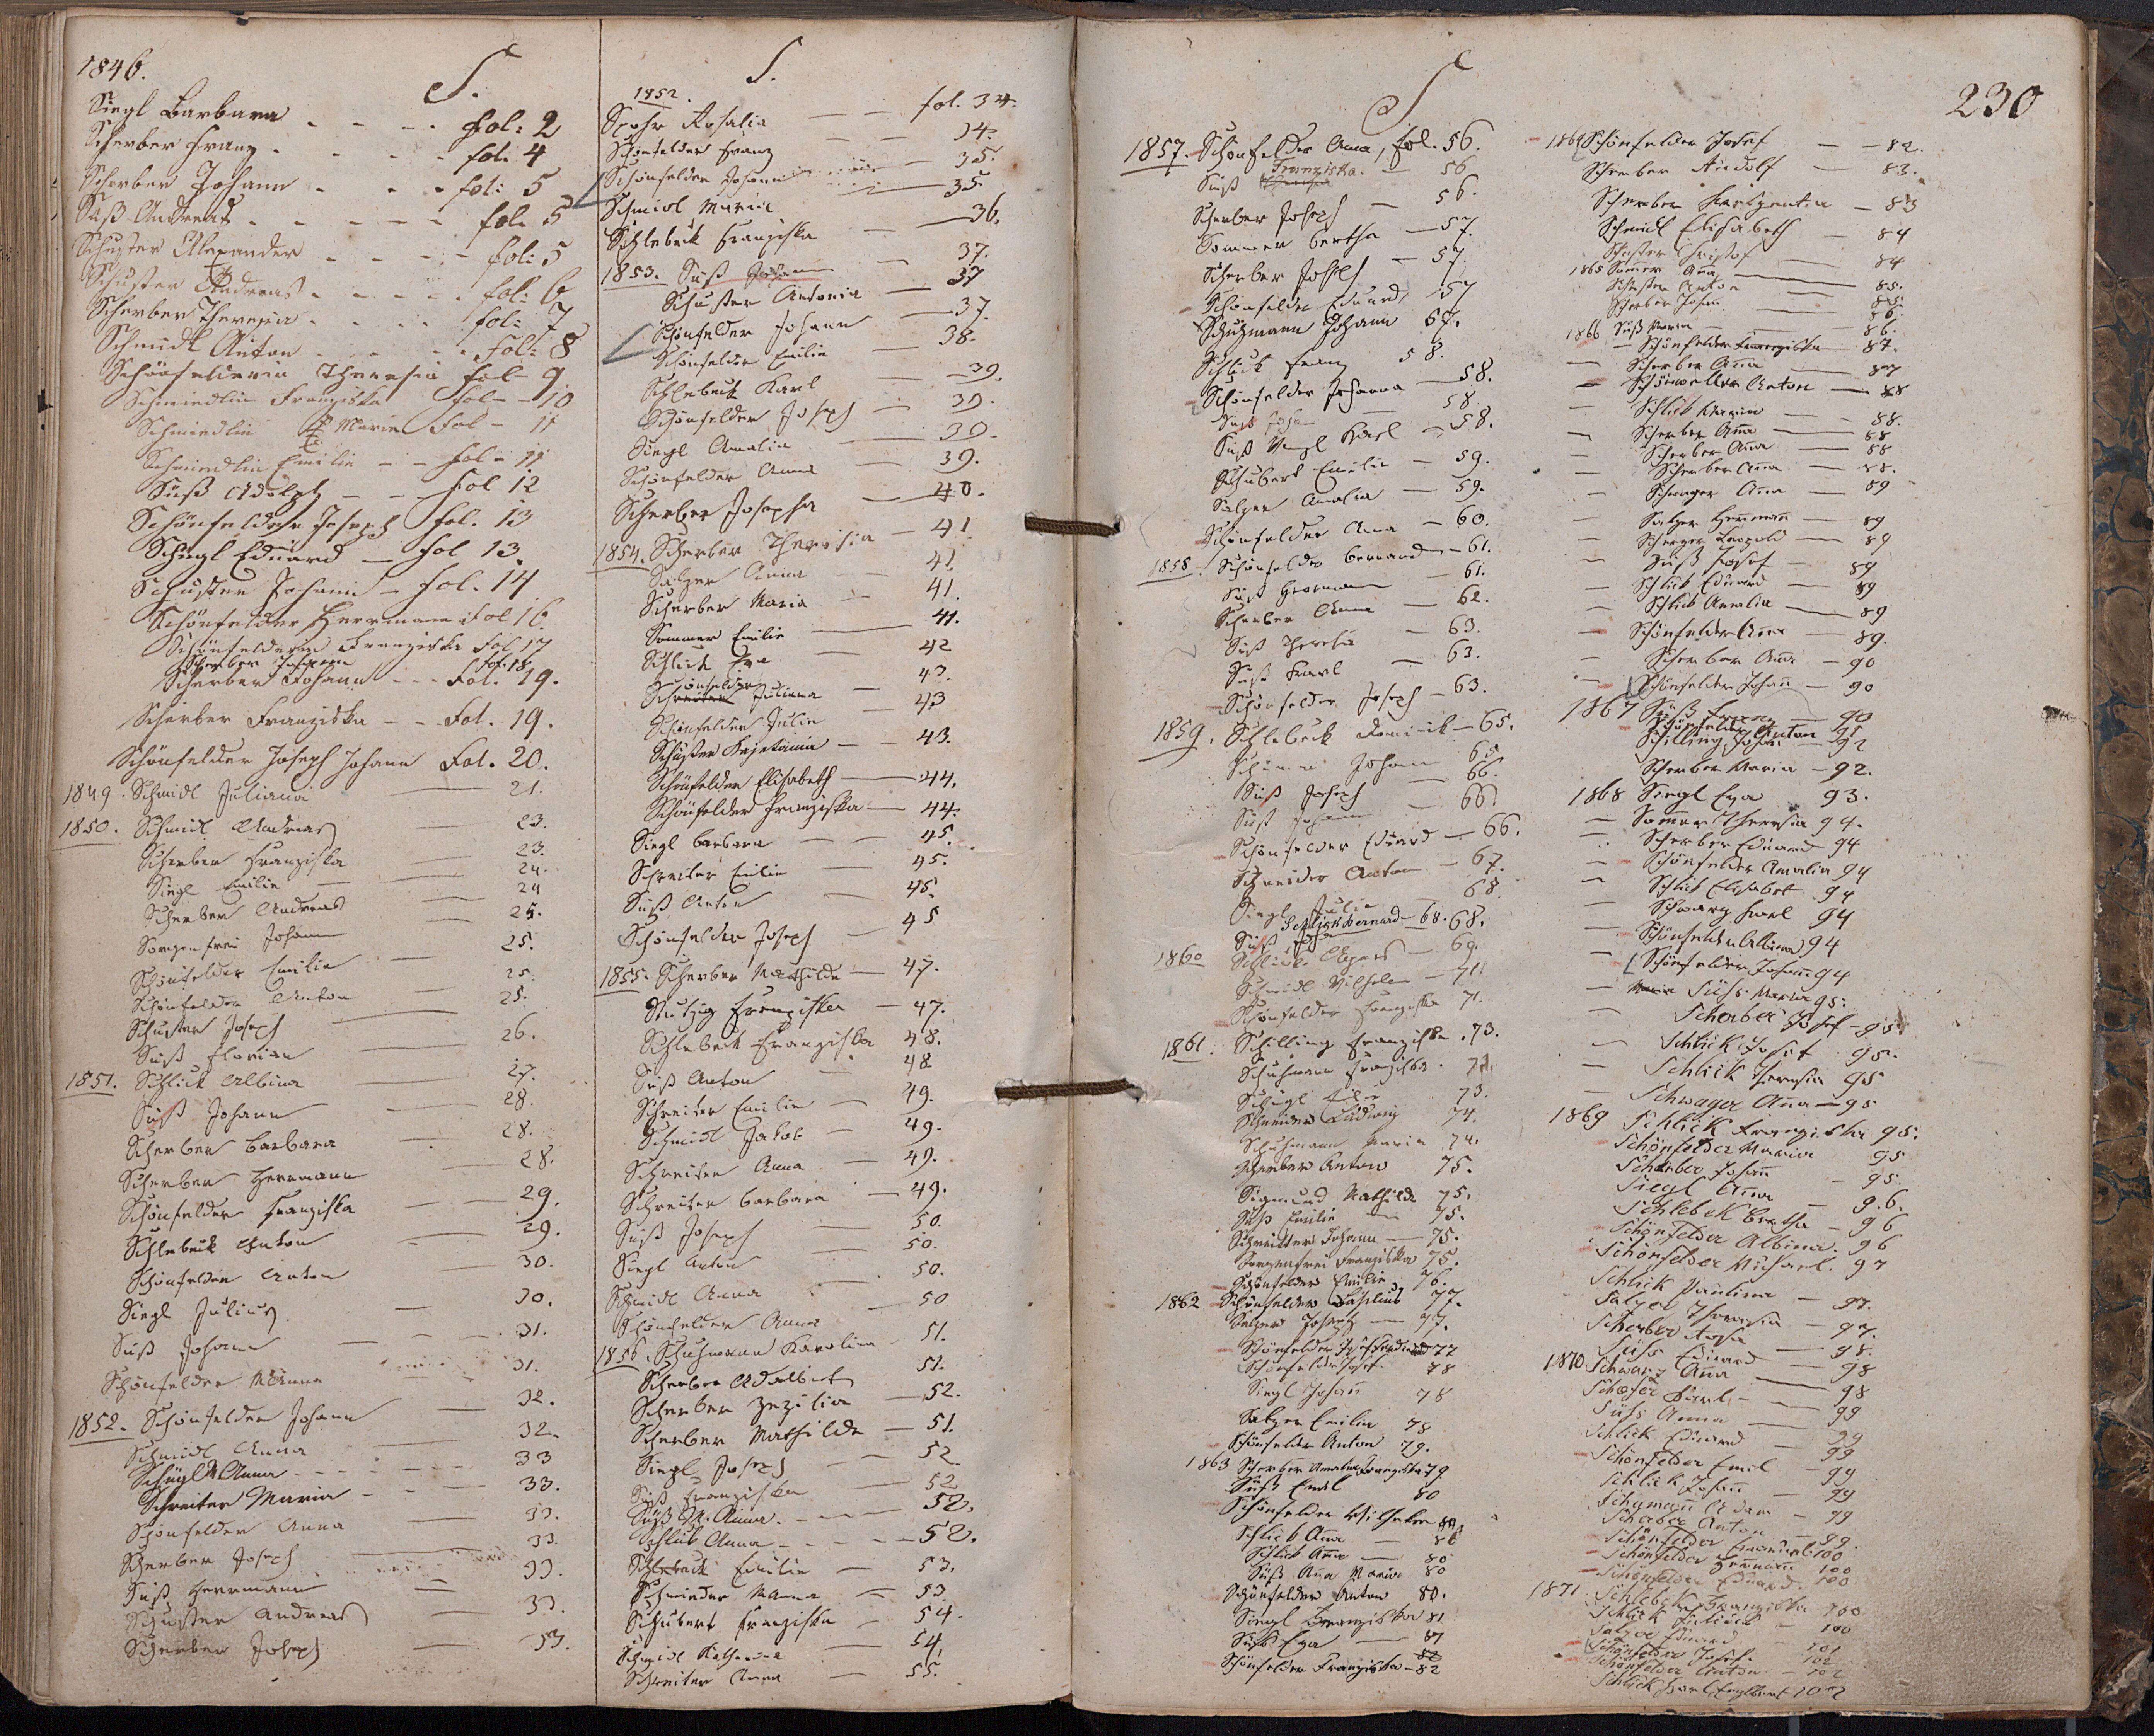 1846.
S.
Siegl Barbara - - - - fol: 2
Scherber Franz - - - - fol: 4
Scherber Johann - - - fol: 5
Süß Andreas - - - - - fol: 5
Schuster Alexander - - - - fol: 5
Schuster Andreas - - - - fol: 6
Scherber Theresia - - - - fol: 7
Schmidl Anton - - - - - fol: 8
Schönfelderin Theresia fol - 9
Schmiedlin Franziska fol - 10
Schmiedlin Marie fol - 11
Schmiedlin Emilie - - fol - 11
Süß Adolph - - fol 12
Schönfelder Joseph fol. 13
Schegl Eduard - fol 13.
Schuster Johann - fol. 14
Schönfelder Herrmann fol 16.
Schönfelderin Franziska fol 17
Scherber Johann fol. 18
Scherber Johann - - fol. 19.
Scherber Franziska - - Fol. 19.
Schönfelder Joseph Johann Fol. 20.
1849. Schmidl Juliana — 21.
1850. Schmidl Andreas — 23.
Scherber Franziska — 23.
Siegl Emilie — 24.
Scherber Andreas — 24
Sorgenfrei Johann — 25.
Schönfelder Emilie — 25.
Schönfelder Anton — 25.
Schuster Joseph — 25.
Süß Florian — 26.
1851. Schlick Albina — 27.
Süß Johann — 28.
Scherber Barbara — 28.
Scherber Herrmann — 28.
Schönfelder Franziska — 29.
Schlebeck Anton — 29.
Schönfelder Anton — 30.
Siegl Julius — 30.
Süß Johann — 31.
Schönfelder MAnna — 31.
1852. Schönfelder Johann — 32.
Schmidl Anna — 32.
Schügl M Anna - - - - 33
Schreiter Maria - - - 33.
Schönfelder Anna — 33.
Scherber Joseph — 33.
Süß Herrmann — 33.
Schuster Andreas — 33.
Scherber Joseph — 33.
S.
1852.
Spohr Rosalia — fol. 34.
Schönfelder Franz — 34.
Schönfelder Johann — 35.
Schmidl Maria — 35.
Schlebeck Franziska — 36.
1853. Süß Johann — 37.
Schuster Antonia — 37
Schönfelder Johann — 37.
Schönfelder Emilie — 38.
Schlebeck Karl — 39.
Schönfelder Joseph — 39.
Siegl Amalia — 39.
Schönfelder Anna — 39.
Scherber Josepha — 40.
1854. Scherber Theresia — 41
Salzer Anna — 41.
Scherber Maria — 41.
Sommer Emilie — 41.
Schlick Eva — 42
Schönfelder Juliana — 43.
Schönfelder Julie — 43
Schuster Kajetania — 43.
Schönfelder Elisabeth — 44.
Schönfelder Franziska — 44.
Siegl Barbara — 45.
Schreiter Emilie — 45.
Süß Anton — 45.
Schönfelder Joseph — 45
1855. Scherber Mathilde — 47.
Stutzig Franziska — 47.
Schlebeck Franziska 48.
Süß Anton — 48
Schreiter Emilie — 49.
Schmidl Jakob — 49.
Schreiter Anna — 49.
Schreiter Barbara — 49.
Süß Joseph — 50.
Siegl Anton — 50.
Schmidl Anna — 50.
Schönfelder Anna — 50
1856. Schuhmann Karolina 51.
Scherber Adalbert 51.
Scherber Zezilia — 52.
Scherber Mathilde — 51.
Siegl Joseph — 52
Süß Franziska — 52
Süß M. Anna. — 52.
Schlick Anna - - - - 52.
Schlebeck Emilie — 53.
Schneider MAnna — 53.
Schubert Franziska — 54.
Schmidl Katharina — 54.
Schreiter Anna — 55.
S
230
1857. Schönfelder Anna, fol. 56.
Süß Franziska. — 56
Scherber Joseph — 56.
Sommer Bertha — 57.
Scherber Joseph — 57
Schönfelder Eduard 57
Schuhmann Johann 57.
Schlick Franz 58.
Schönfelder Johanna — 58.
Süß Johann — 58
Süß Karl — 58.
Schubert Emilie — 59.
Salzer Amalia — 59.
Schönfelder Anna — 60.
1858. Schönfelder Bernard — 61.
Süß Hermann — 61.
Scherber Anna — 62.
Süß Theresia — 63.
Süß Karl — 63.
Schönfelder Joseph — 63.
1859. Schlebeck Dominik — 65.
Johann 65
Süß Joseph — 66.
Süß Johann — 66.
Schönfelder Eduard — 66.
Schneider Anton — 67.
Siegl Julie — 68
Schlick Bernard — 68.
Süß 68.
1860 Schlick — 69.
Schmidl Wilhelm — 71.
Schönfelder Franziska 71.
1861. Schilling Franziska. 73.
Schuhmann Franziska. 73.
Schügl 73.
Schneider Ludwig 74.
Schuhmann Maria 74.
Scherber Anton 75.
Sigmund Mathilde 75.
Süß Emilie — 75.
Schreitter Johann — 75.
Sorgenfrei Franziska 75.
Schönfelder Emilie 76.
1862 Schönfelder Basilius 77.
Salzer Joseph — 77.
Schönfelder Ferdinand 77
Schönfelder Josef 78
Siegl Johañ 78
Salzer Emilie 78
Schönfelder Anton 79.
1863 Scherber Amalia Franziska 79
Süß Emil 80
Schönfelder Wilhelm 80.
Schlick Aña — 80
Schlick Aña — 80
Süß Aña Maria 80
Schönfelder Anton 80.
Siegl Franziska 81
Süß Eva — 81
Schönfelder Franziska - 82
1864 Schönfelder Josef — 82.
Scherber Rudolf — 83.
Scherber — 83
Schmidl Elisabeth — 84
Schuster Christof — 84
1865 Sommer Aña — 85.
Schuster Anton — 85.
Scherber Johann — 86.
1866 Süß Maria — 86.
Schönfelder Franziska — 87.
Scherber Aña — 87
Schönfelder Anton — 88
Schlick Maria — 88.
Scherber Aña — 88
Scherber Aña — 88
Scherber Aña — 88.
Schwager Aña — 89
Salzer Hermann — 89
Leopold — 89
Süß Josef — 89
Schlick Eduard — 89
Schlick Amalia — 89
Schönfelder Aña — 89.
Scherber Aña — 90
Schönfelder Johañ — 90
1867 Süß Franz — 90
Schönfelder Anton 91
Schilling Johañ — 92
Scherber Maria — 92.
1868 Siegl Eva 93.
Sommer Theresia 94.
Scherber Eduard 94
Schönfelder Amalia 94
Schlick Elisabet 94
Schwarz Karl 94
Schönfelder Albina 94
Schönfelder Johañ 94
Süss Maria 95.
Scherber Josef - 95
Schlick Josef 95.
Schlick Theresia 95
Schwager Aña — 95
1869 Schlick Franziska 95.
Schönfelder Maria 95
Scherber Johañ — 95.
Siegl Aña — 96.
Schlebek Bertha — 96
Schönfelder Albina. 96
Schönfelder Michael. 97
Schlick Paulina — 97.
Salzer Theresia — 97.
Scherber Rosa — 98.
Süss Eduard — 98
1870 Schwarz Aña — 98
Schafer Karl — 99
Süss Anna — 99
Schlick Eduard — 99
Schönfelder Emil — 99
Schlick Johañ — 99
Adam — 99
Scherber Anton — 99.
Schönfelder Emanuel 100
Schönfelder Hermañ 100
Schönfelder Eduard. 100
1871 Schlebek Franziska 100
Schlick Julius — 100
Salzer Eduard — 101
Schönfelder Josef. 102
Schönfelder Anton — 102
Schlick Karl Engelbert 102